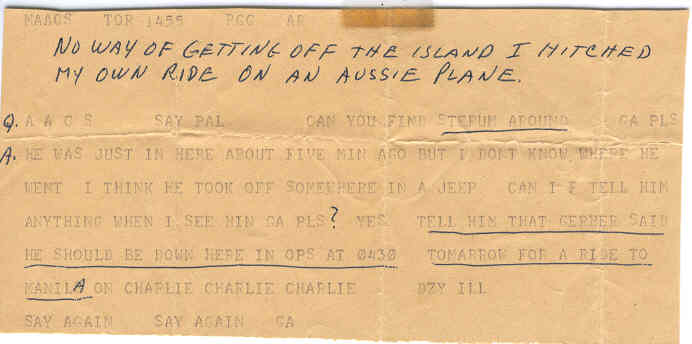 MAAOS TOR 1455 PGC AR
NO WAY OF GETTING OFF THE ISLAND I HITCHED
MY OWN RIDE ON AN AUSSIE PLANE.
Q. A A C S SAY PAL CAN YOU FIND STEPUM AROUND GA PLS
A. HE WAS JUST IN HERE ABOUT FIVE MIN AGO BUT I DONT KNOW WHERE HE
WENT I THINK HE TOOK OFF SOMEWHERE IN A JEEP CAN I F TELL HIM
ANYTHING WHEN I SEE HIM GA PLS? YES TELL HIM THAT GERBER SAID
HE SHOULD BE DOWN HERE IN OPS AT 0430 TOMORROW FOR A RIDE TO
MANILA ON CHARLIE CHARLIE CHARLIE DZY ILL
SAY AGAIN SAY AGAIN GA